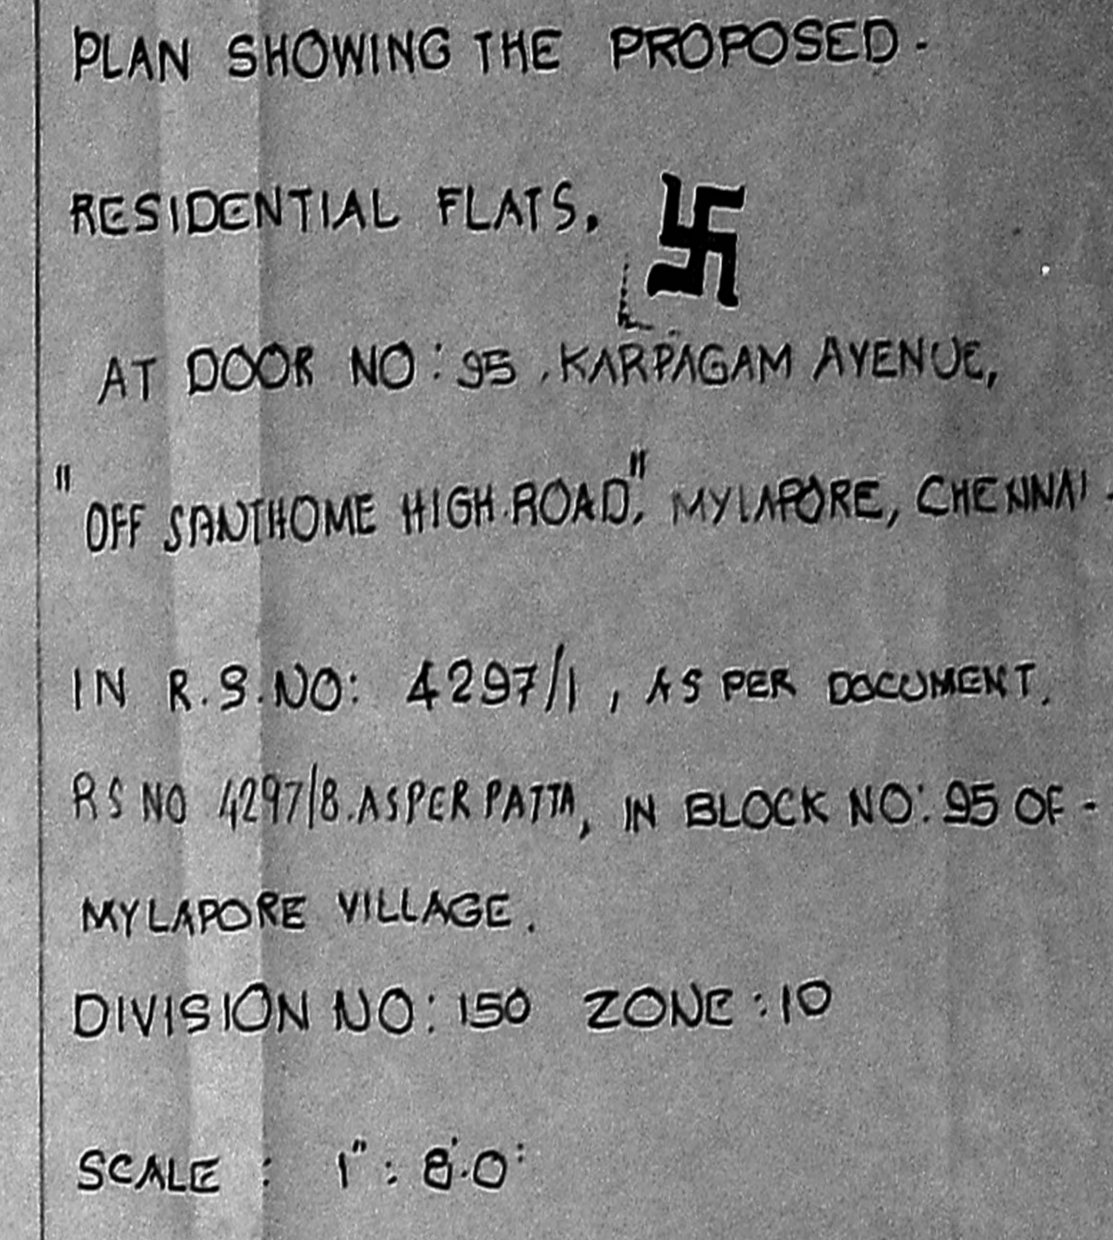 PLAN SHOWING THE PROPOSED -
RESIDENTIAL FLATS.
AT DOOR NO: 95, KARPAGAM AVENUE,
"OFF SANTHOME HIGH ROAD", MYLAPORE, CHENNAI -
IN R.S.NO: 4297/1, AS PER DOCUMENT.
RS NO 4297/8. AS PER PATTA, IN BLOCK NO: 95 OF -
MYLAPORE VILLAGE.
DIVISION NO: 150 ZONE: 10
SCALE : 1" : 8'.0"